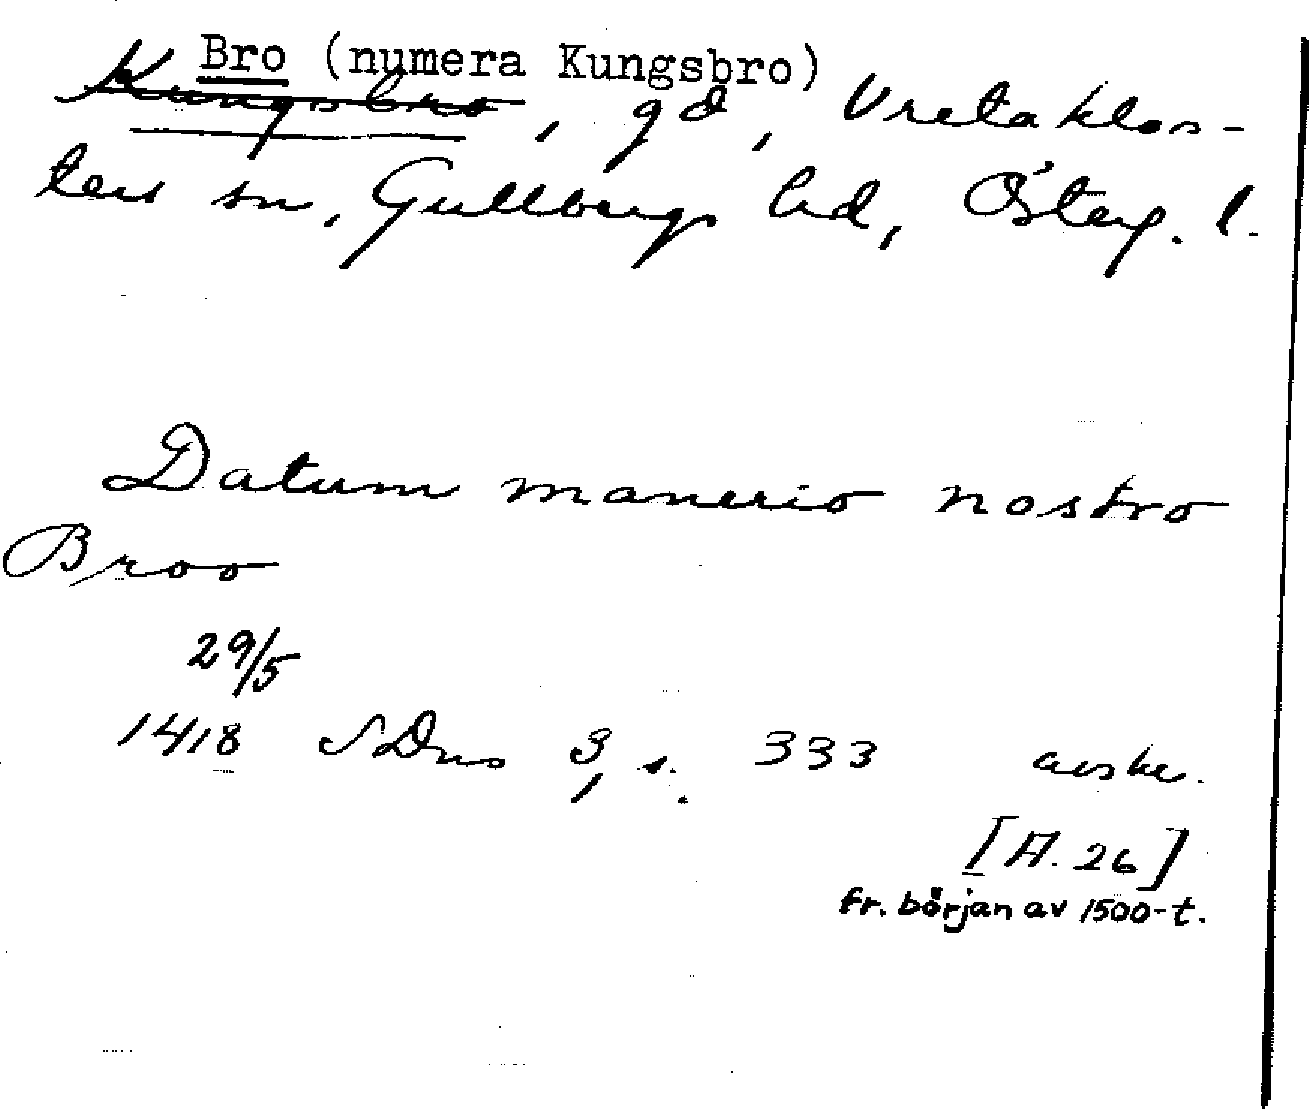 Bro (numera Kungsbro)
Kungsbro, gd, Vretaklos-
ters sn, Gullbergs hd, Österg. l.
Datum manerio nostro
Broo
29/5
1418 SDns 3, s. 333 avskr.
[A. 26]
fr. början av 1500-t.